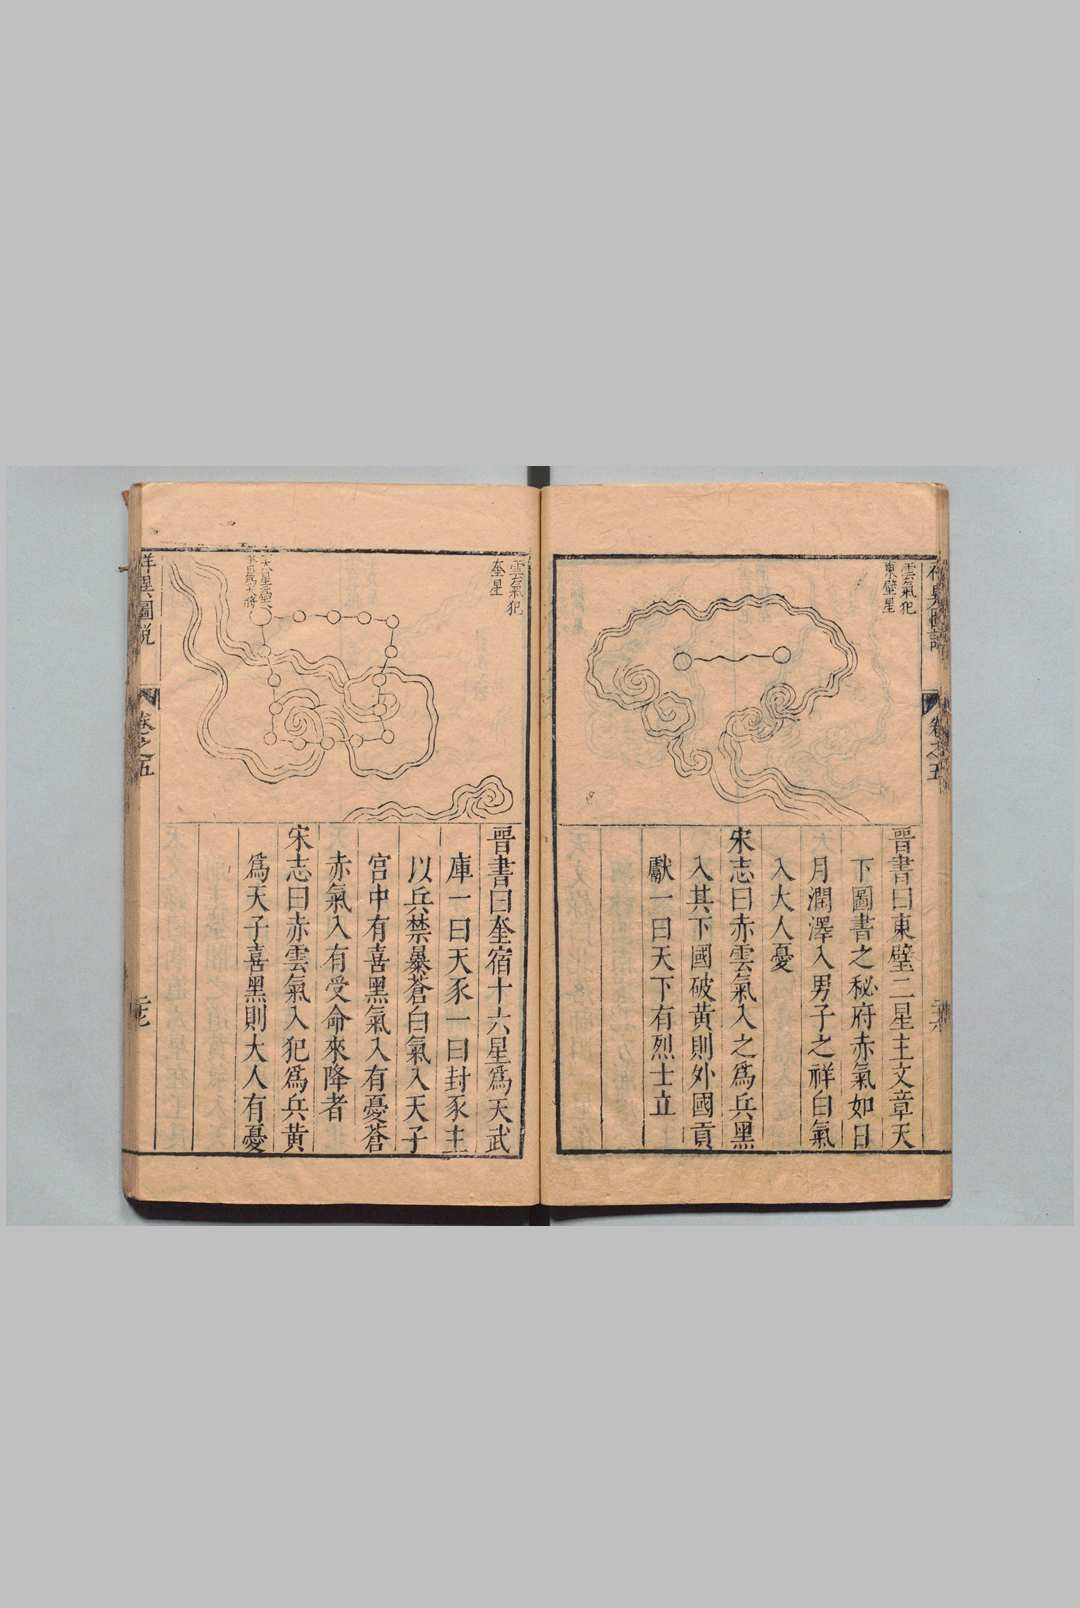 雲氣犯
東壁星
晉書曰東壁二星主文章天
下圖書之秘府赤氣如日
月潤澤入男子之祥白氣
入大人憂
宋志曰赤雲氣入之爲兵黑
入其下國破黃則外國貢
獻一曰天下有烈士立
卷之五
雲氣犯
奎星
晉書曰奎宿十六星爲天武
庫一曰天豕一曰封豕主
以兵禁暴蒼白氣入天子
宮中有喜黑氣入有憂蒼
赤氣入有受命來降者
宋志曰赤雲氣入犯爲兵黃
爲天子喜黑則大人有憂
祥異圖說
卷之五
二七